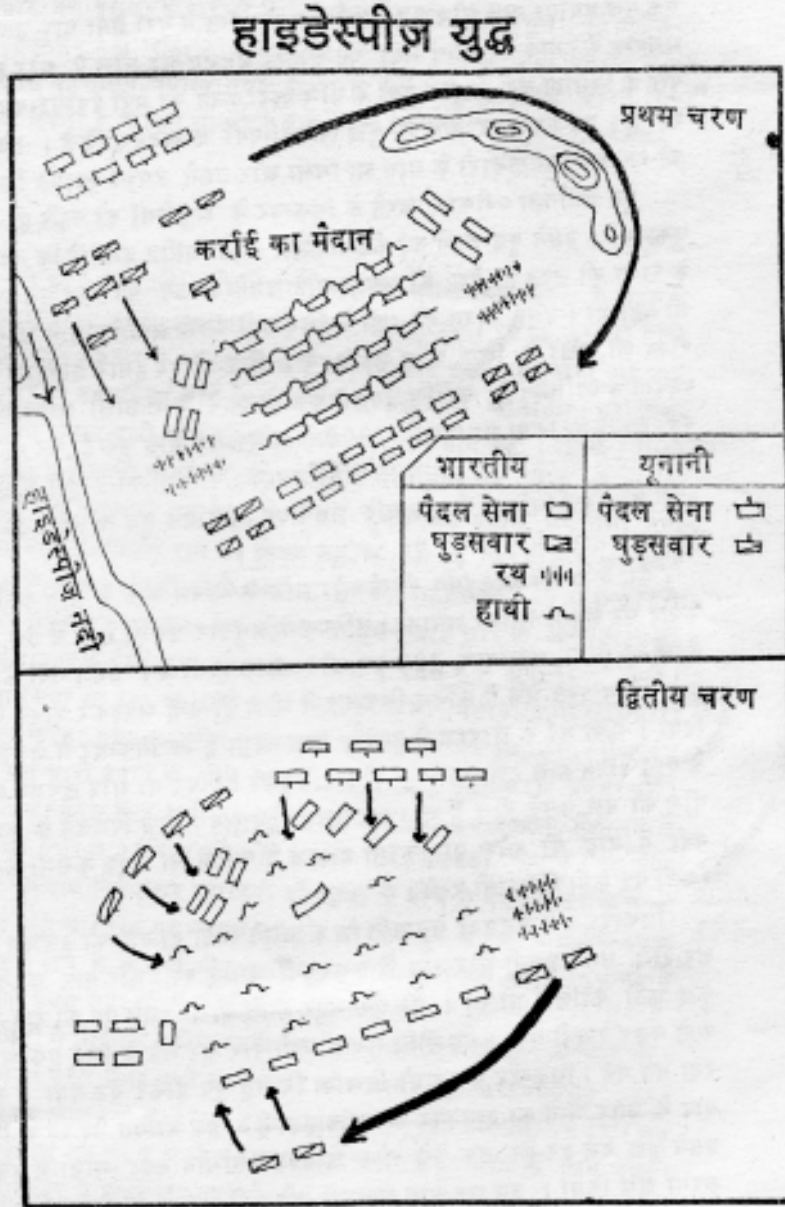 हाइडेस्पीज़ युद्ध
प्रथम चरण
कर्राई का मैदान
हाइडेस्पीज नदी
भारतीय यूनानी
पैदल सेना पैदल सेना
घुड़सवार घुड़सवार
रथ
हाथी
द्वितीय चरण